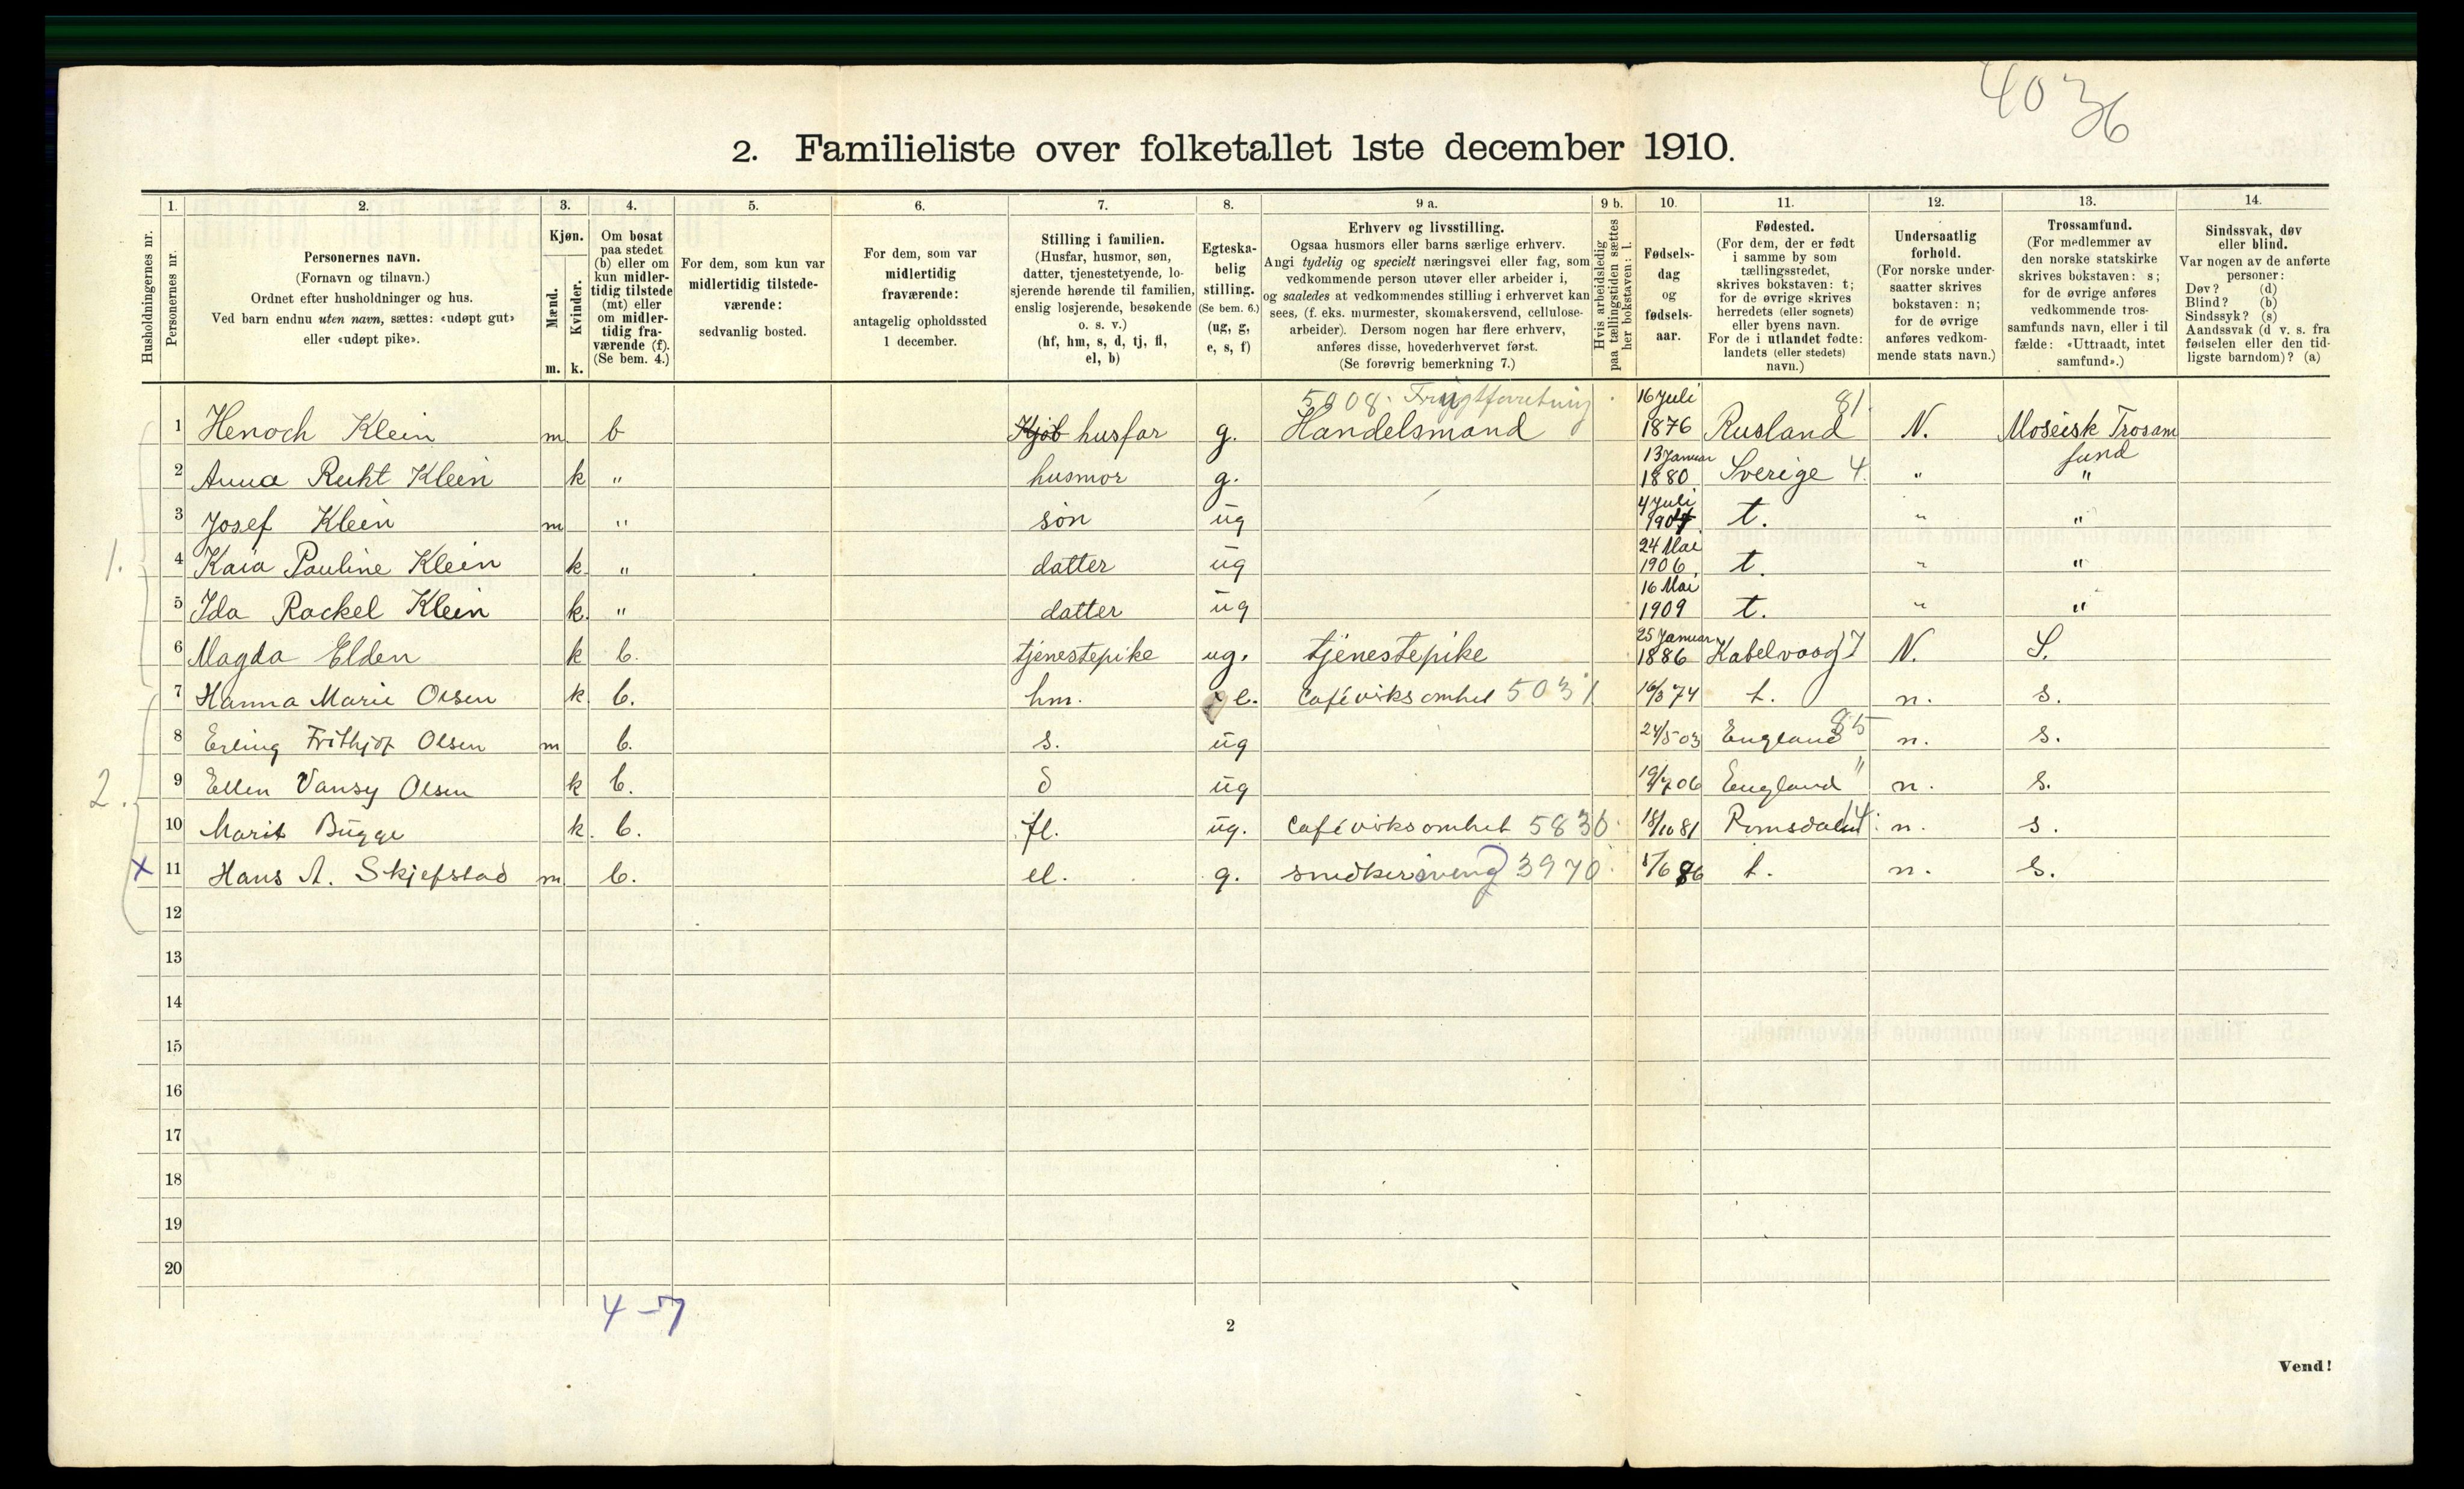 4036
2. Familieliste over folketallet 1ste december 1910.
Husholdningernes nr.
1. Personernes nr.
2. Personernes navn.
(Fornavn og tilnavn.)
Ordnet efter husholdninger og hus.
Ved barn endnu uten navn, sættes: «udøpt gut»
eller «udøpt pike».
3. Kjøn.
Mænd. Kvinder.
m. k.
4. Om bosat
paa stedet
(b) eller om
kun midler-
tidig tilstede
(mt) eller
om midler-
tidig fra-
værende (f).
(Se bem. 4.)
5. For dem, som kun var
midlertidig tilstede-
værende:
sedvanlig bosted.
6. For dem, som var
midlertidig
fraværende:
antagelig opholdssted
1 december.
7. Stilling i familien.
(Husfar, husmor, søn,
datter, tjenestetyende, lo-
sjerende hørende til familien,
enslig losjerende, besøkende
o. s. v.)
(hf, hm, s, d, tj, fl,
el, b)
8. Egteska-
belig
stilling.
(Se bem. 6.)
(ug, g,
e, s, f)
9 a. Erhverv og livsstilling.
Ogsaa husmors eller barns særlige erhverv.
Angi tydelig og specielt næringsvei eller fag, som
vedkommende person utøver eller arbeider i,
og saaledes at vedkommendes stilling i erhvervet kan
sees, (f. eks. murmester, skomakersvend, cellulose-
arbeider). Dersom nogen har flere erhverv,
anføres disse, hovederhvervet først.
(Se forøvrig bemerkning 7.)
9 b. Hvis arbeidsledig
paa tællingstiden sættes
her bokstaven: l.
10. Fødsels-
dag
og
fødsels-
aar.
11. Fødested.
(For dem, der er født
i samme by som
tællingsstedet,
skrives bokstaven: t;
for de øvrige skrives
herredets (eller sognets)
eller byens navn.
For de i utlandet fødte:
landets (eller stedets)
navn.)
12. Undersaatlig
forhold.
(For norske under-
saatter skrives
bokstaven: n;
for de øvrige
anføres vedkom-
mende stats navn.)
13. Trossamfund.
(For medlemmer av
den norske statskirke
skrives bokstaven: s;
for de øvrige anføres
vedkommende tros-
samfunds navn, eller i til
fælde: «Uttraadt, intet
samfund».)
14. Sindssvak, døv
eller blind.
Var nogen av de anførte
personer:
Døv? (d)
Blind? (b)
Sindssyk? (s)
Aandssvak (d v. s. fra
fødselen eller den tid-
ligste barndom)? (a)
5008. Frugtforretning 81.
1 Henoch Klein m. b husfar g. Handelsmand 16 Juli 1876 Rusland N. Moseisk Trosam
fund
2 Anna Rukt Klein k " husmor g. 13 Januar 1880 Sverige 4. " "
3 Josef Klein m " søn ug 4 Juli t. " "
1. 4 Kaia Pauline Klein k " datter ug 24 Mai 1906 t. " "
5 Ida Rackel Klein k. " datter ug 16 Mai 1909 t. " "
6 Magda Elden k b. tjenestepike ug. tjenestepike 25 Januar 1886 Kabelvaag 17 N. S.
7 Hanna Marie Olsen k. b. hm. e. Caféviksomhet 5031 16/3 74 t. n. s.
8 Erling Frithjof Olsen m b. s. ug 24/5 03 England 85 n. s.
2. 9 Ellen Vansy Olsen k b. d ug 06 England " n. s.
10 Marit Bugge k. b. fl. ug. Caféviksomhet 5836 18/10 81 Romsdalen 14 n. s.
X 11 Hans A. Skjefstad m b. el. g. snedkersvend 3970 86 t. n. s.
12
13
14
15
16
17
18
19
20
4-7
2
Vend!